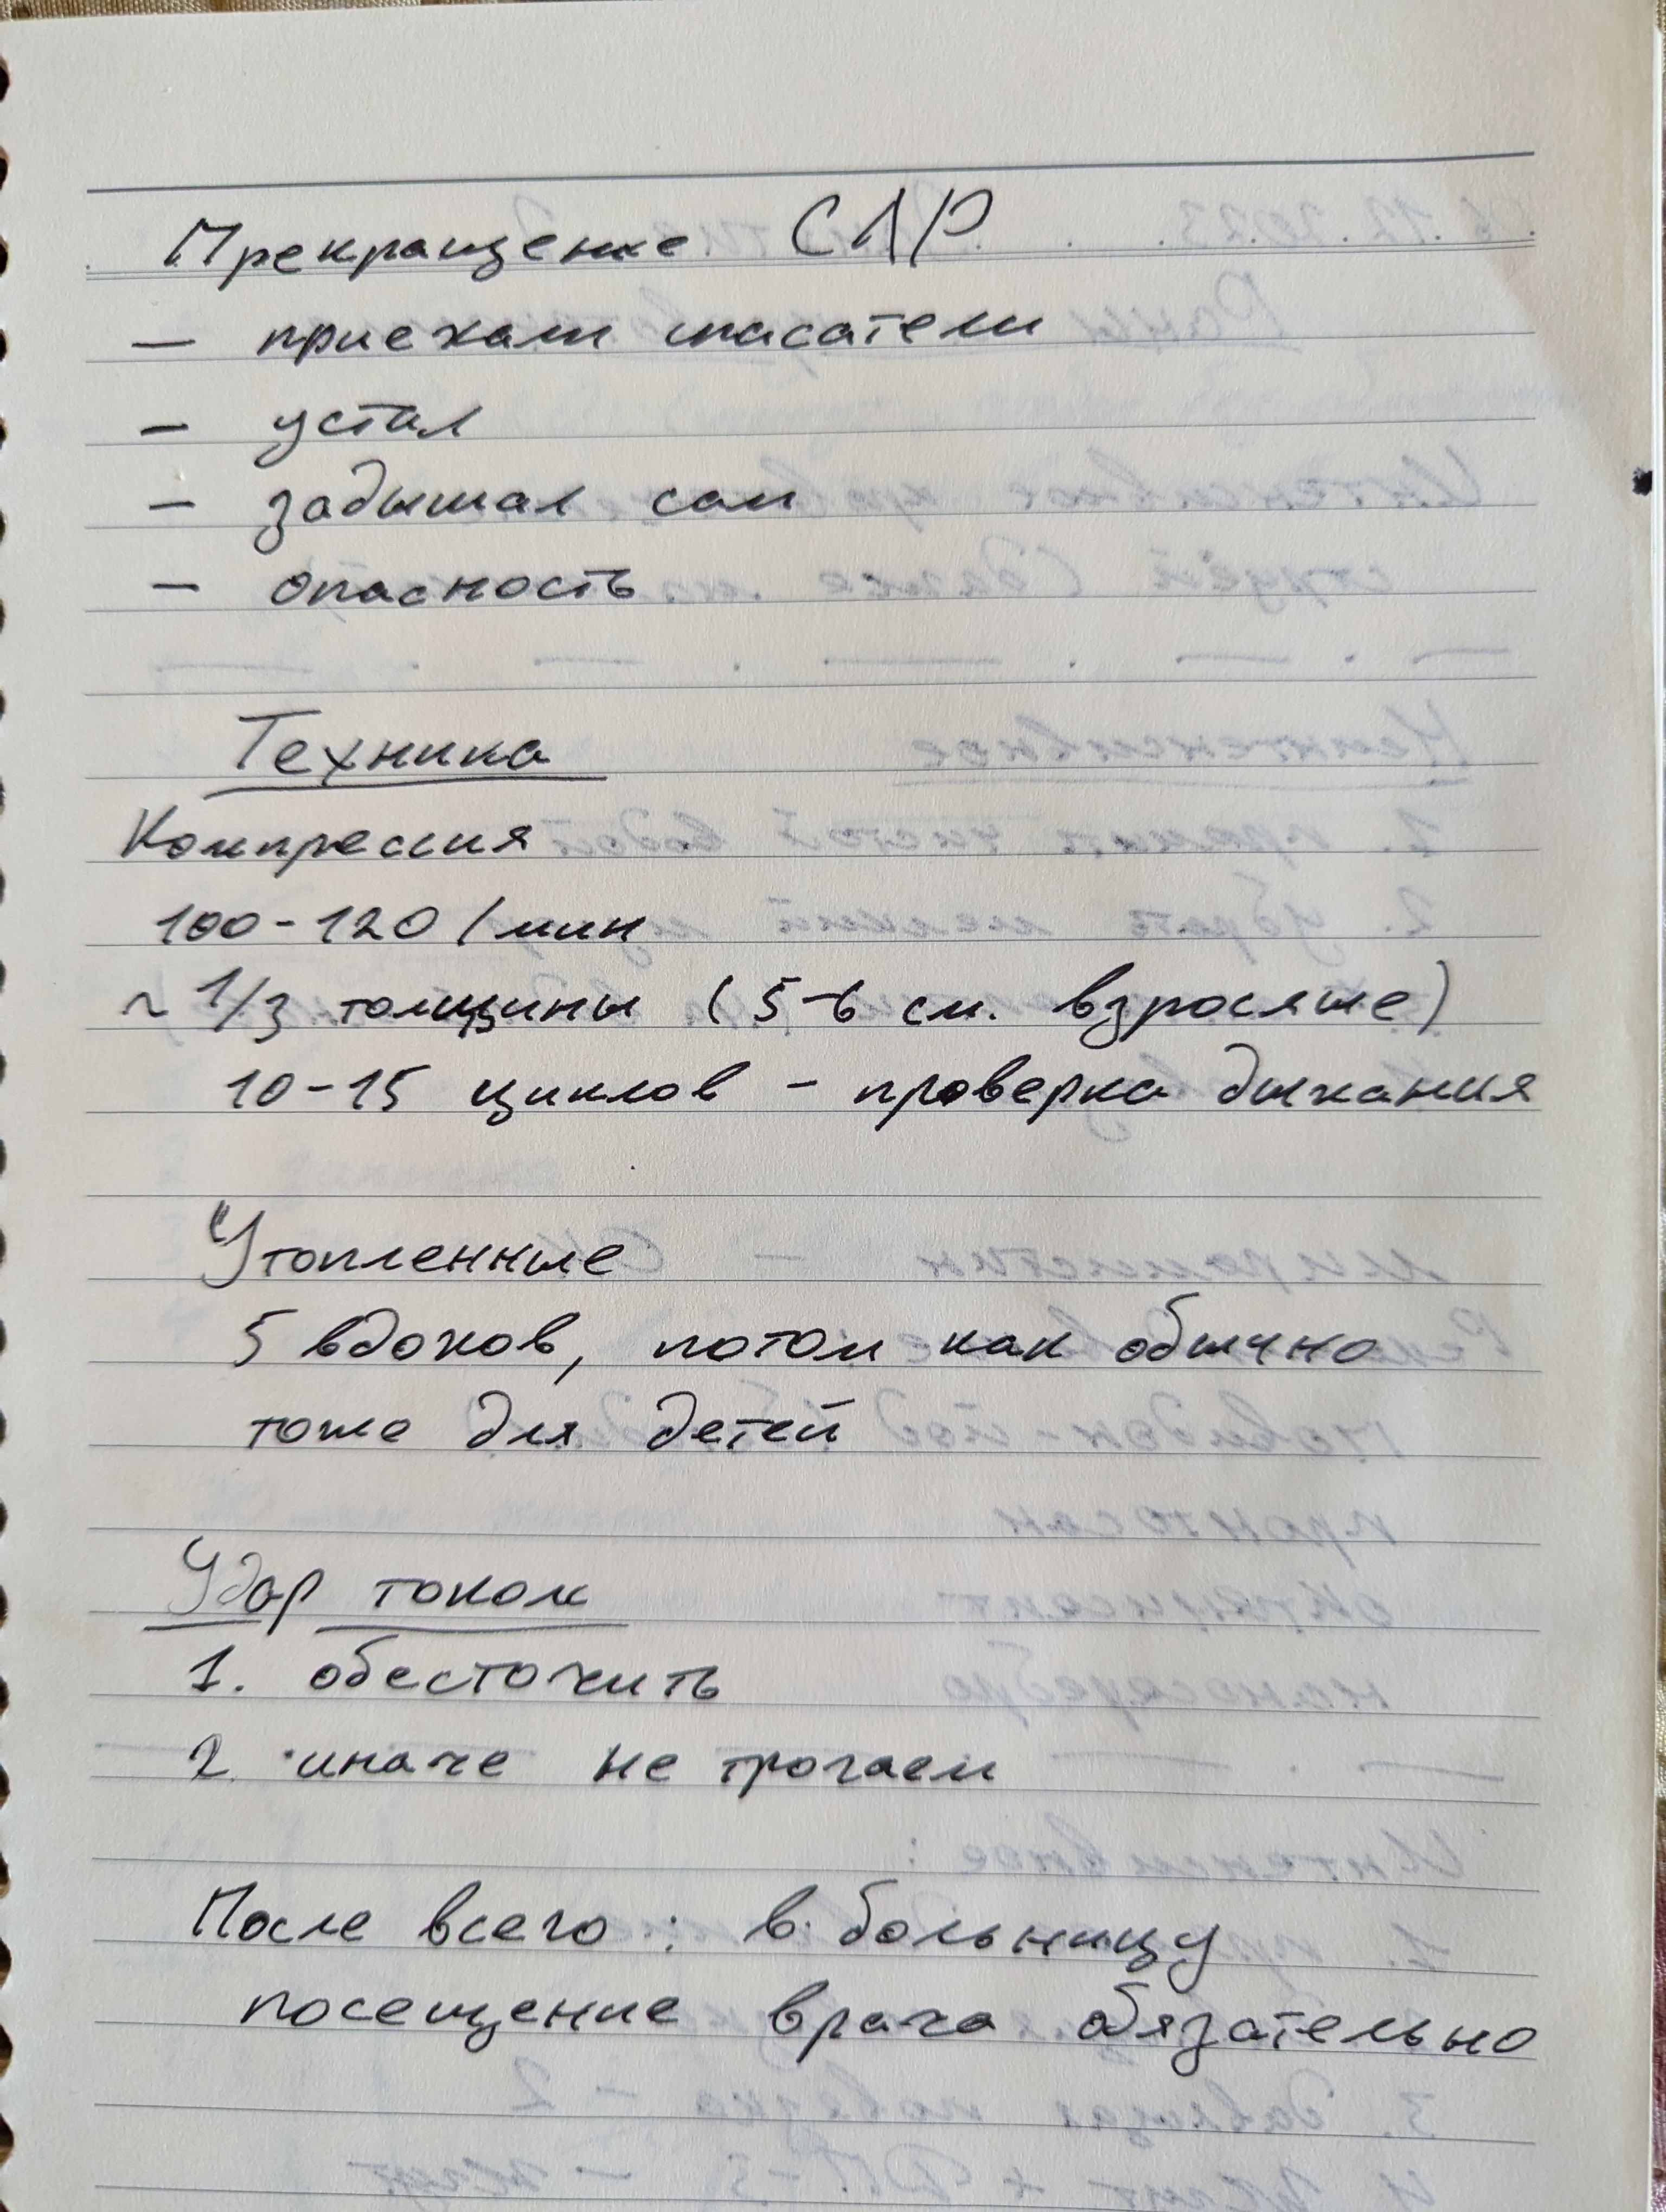 Прекращение СЛР
— приехали спасатели
— устал
— задышал сам
— опасность
Техника
Компрессия
100-120 / мин
~ 1/3 толщины (5-6 см. взрослые)
10-15 циклов - проверка дыхания
Утопленные
5 вдохов, потом как обычно
тоже для детей
Удар током
1. обесточить
2. иначе не трогаем
После всего: в больницу
посещение врача обязательно